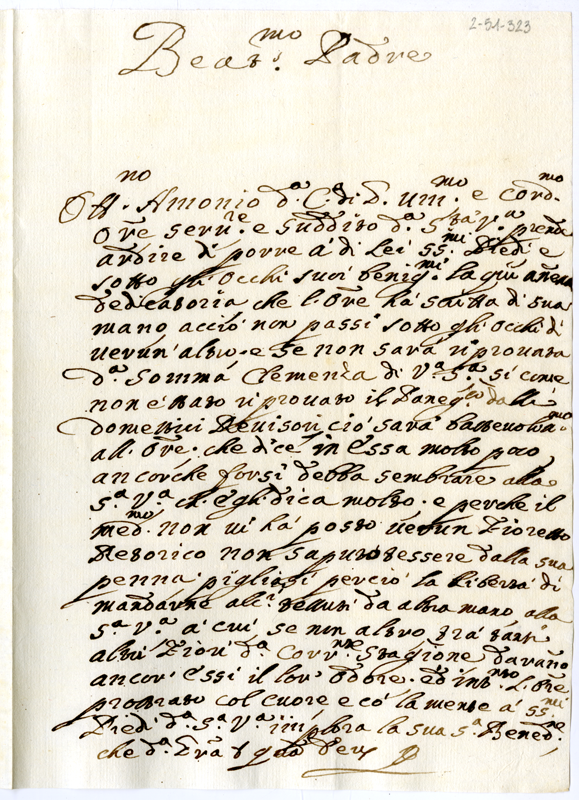 2-51-323
Beat.mo Padre
Ant.no Antonio d.a C.a di D. um.mo e cord.mo
Ore seru.re e Suddito d.a S.tà V.a prende
ardire di porre à di Lei SS.mi Piedi e
sotto gli occhi suoi benig.mi la qui anessa
dedicatoria che l'Ore hà scritta di sua
mano acciò non passi sotto gli occhi di
uerun'altro. e se non sarà riprouata
d.a Somma Clemenza di V.a S.a si come
non è stato riprouato il Paneg.co dalli
domestici Reuisori ciò sarà basteuoliss.mo
all'Ore. che dice in essa molto poco
ancorche forsi debba sembrare alla
S.a V.a ch'egli dica molto. e perche il
med.mo non ui hà posto uerun Fioretto
Retorico non saputo tessere dalla sua
penna pigliasi perciò la libertà di
mandarne alc.i tessuti da altra mano alla
S.a V.a à cui se non altro trà tanti
altri Fiori d.a corr.nte Stagione daranno
ancor'essi il lor' odore. ed int.nto l'Ore
prostrato col cuore e cò la mente à SS.mi
Piedi d.a S.a V.a implora la sua S.a Bened.ne
che d.a